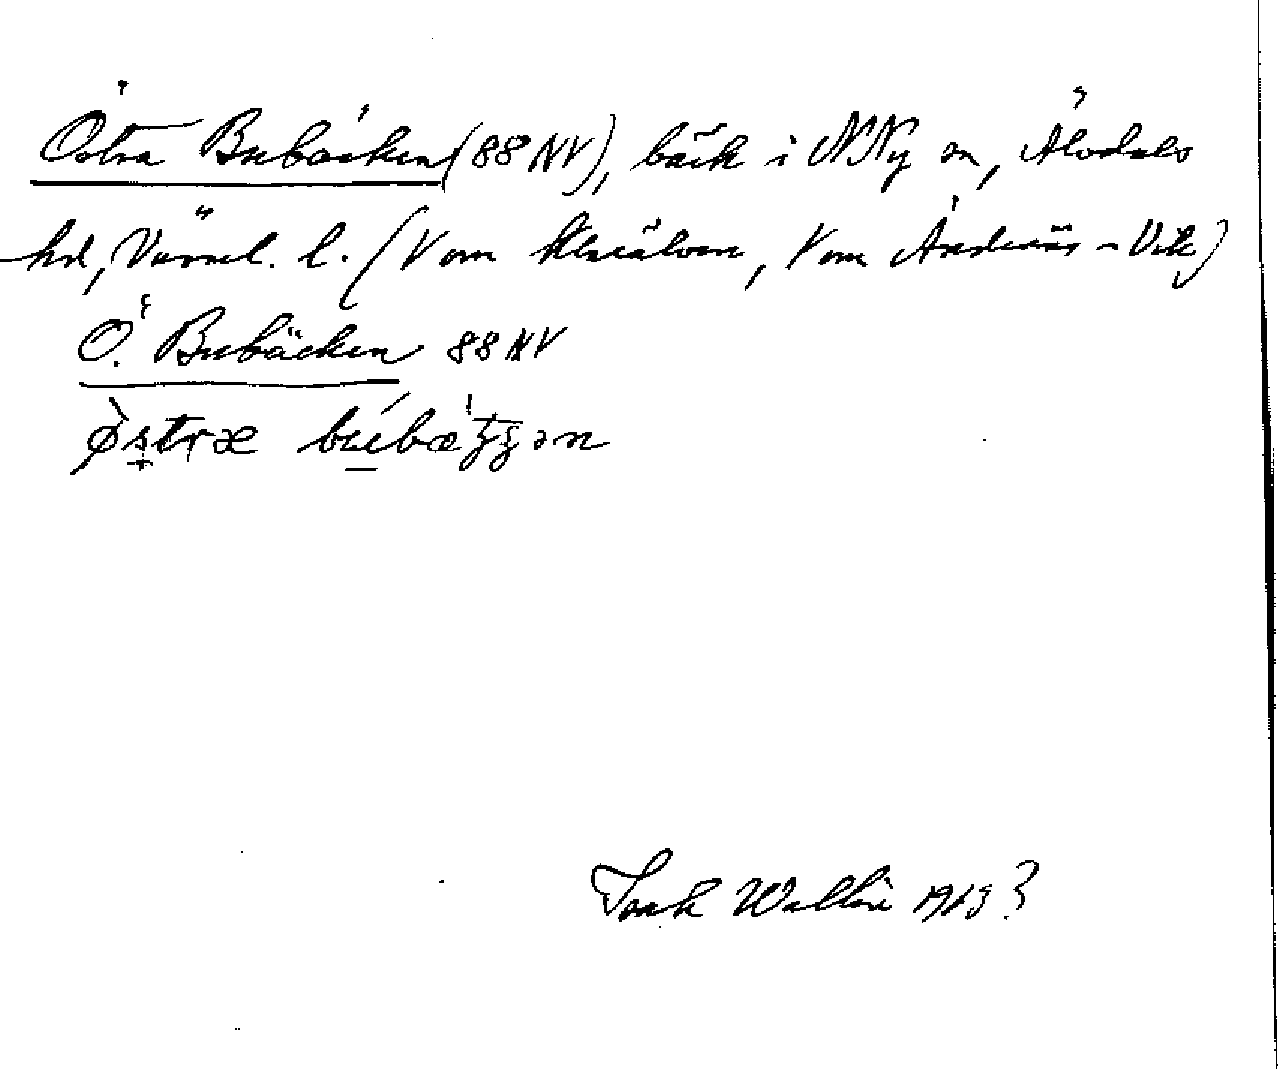 Östra Bubäcken (88 NV), bäck i N Ny sn, Älvdals
hd, Värml. l. (V om Klarälven, V om Ö. Vik)
Ö. Bubäcken 88 NV
østræ búbæʒʒən
Isak Wallin 1913?